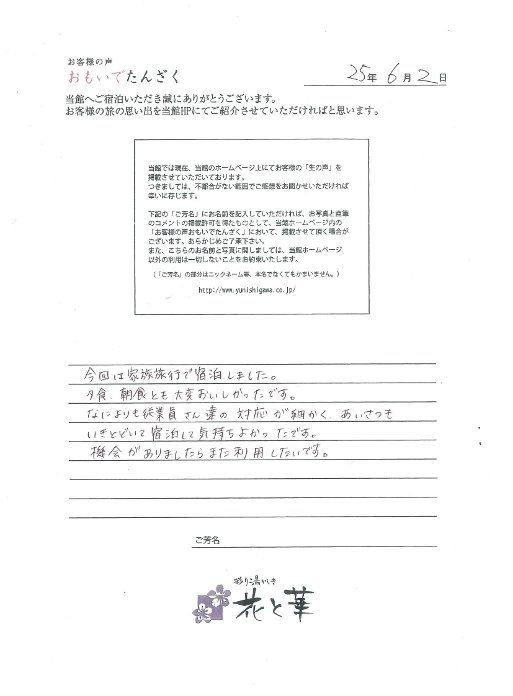 お客様の声
おもいでたんざく
25年 6月 2日
当館へご宿泊いただき誠にありがとうございます。
お客様の旅の思い出を当館HPにてご紹介させていただければと思います。
当館では現在、当館のホームページ上にてお客様の「生の声」を
掲載させていただいております。
つきましては、不都合がない範囲でご感想をお聞かせいただければ
幸いに存じます。
下記の「ご芳名」にお名前を記入していただければ、お写真と直筆
のコメントの掲載許可を得たものとして、当館ホームページ内の
「お客様の声おもいでたんざく」において、掲載させて頂く場合が
ございます。あらかじめご了承下さい。
また、こちらのお名前と写真に関しましては、当館ホームページ
以外の利用は一切しないことをお約束いたします。
(「ご芳名」の部分はニックネーム等、本名でなくてもかまいません。)
http://www.yunishigawa.co.jp/
今回は家族旅行で宿泊しました。
夕食、朝食とも大変おいしかったです。
なによりも従業員さん達の対応が細かく、あいさつも
いきとどいて宿泊して気持ちよかったです。
機会がありましたらまた利用したいです。
ご芳名
彩り湯かしき
花と華